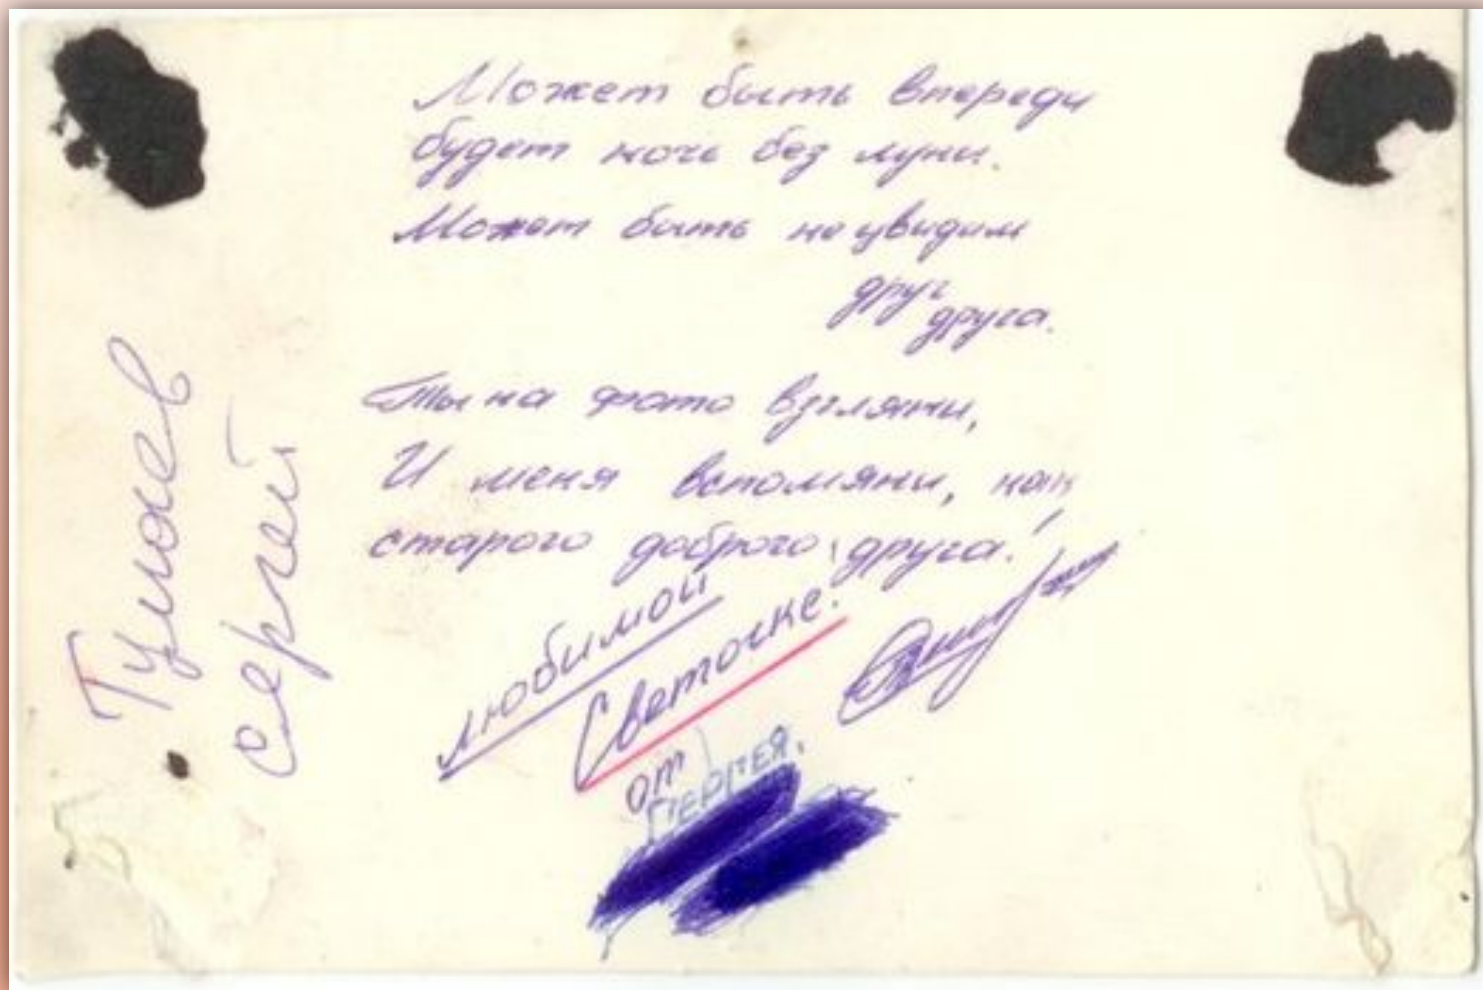 Может быть впереди
будет ночь без луны.
Может быть не увидим
друг
друга.
Ты на фото взгляни,
И меня вспомяни, как
старого доброго друга!
любимой
Светочке!
от
СЕРГЕЯ.
Сергей